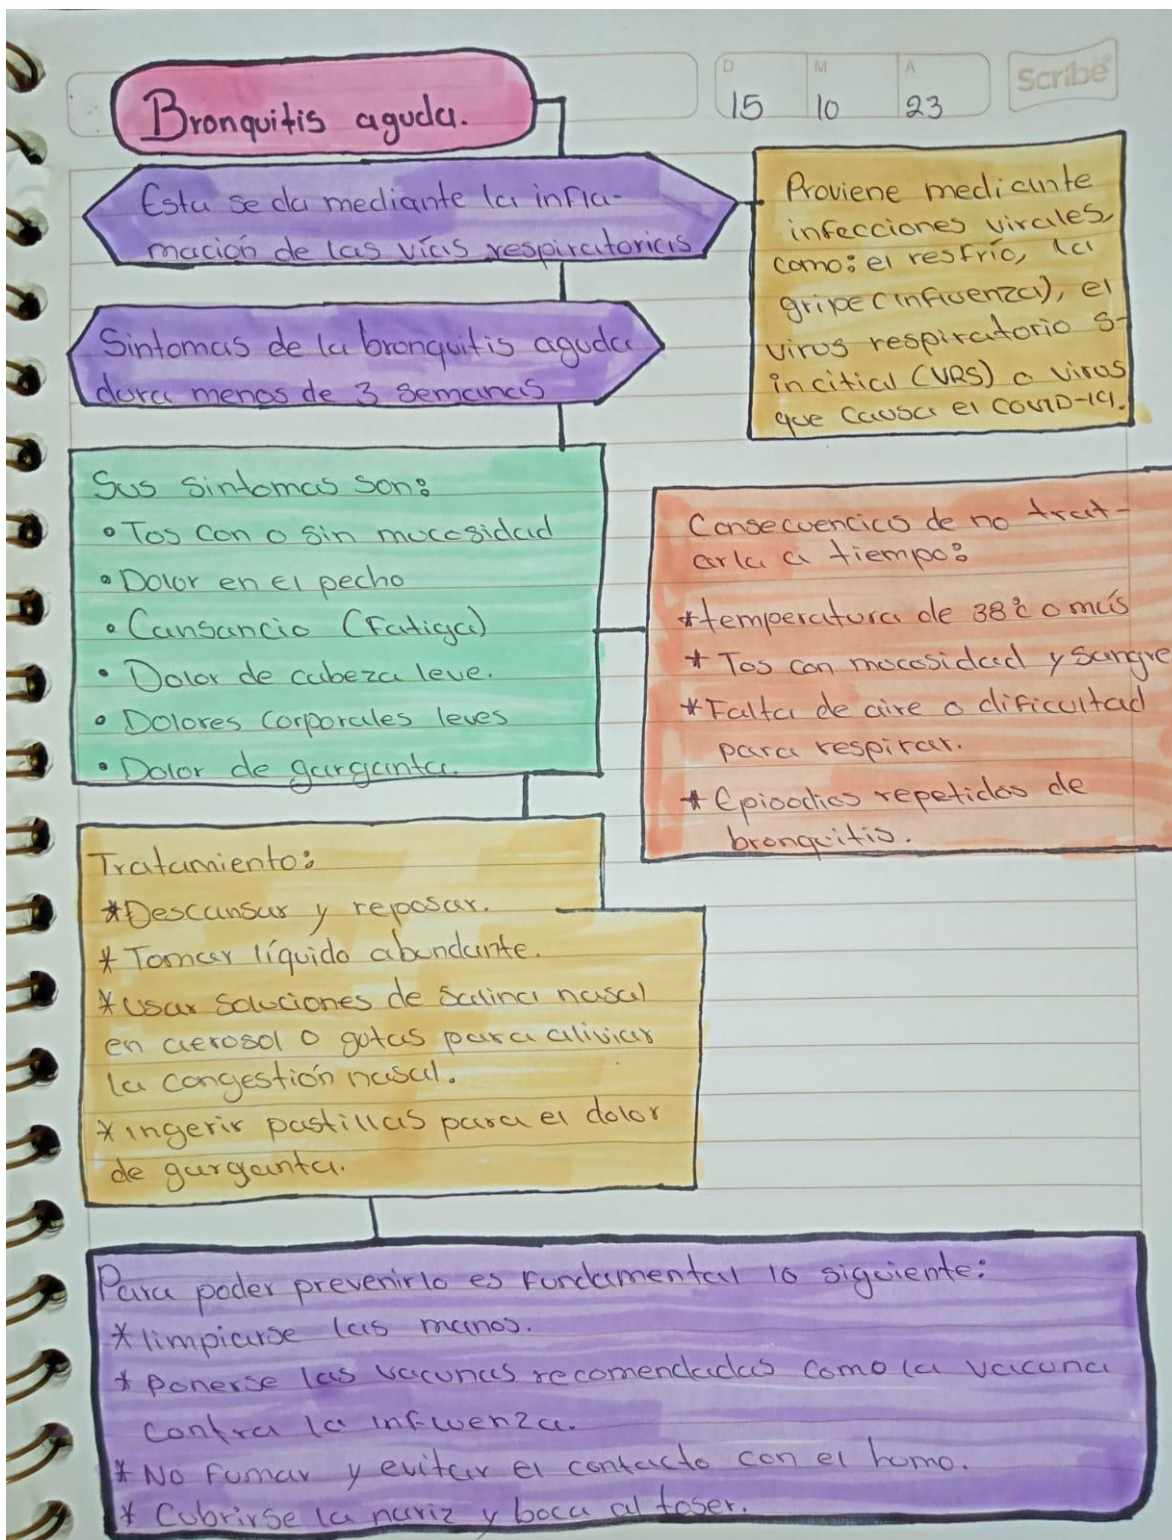 D M A
Scribe
15 10 23
Bronquitis aguda.
Esta se da mediante la infla-
mación de las vías respiratorias
Proviene mediante
infecciones virales,
como: el resfrío, la
gripe (influenza), el
virus respiratorio s-
incitial (VRS) o virus
que causa el COVID-19.
Sintomas de la bronquitis aguda
dura menos de 3 semanas
Sus sintomas son:
• Tos con o sin mucosidad
• Dolor en el pecho
• Cansancio (Fatiga)
• Dolor de cabeza leve.
• Dolores corporales leves
• Dolor de garganta.
Consecuencias de no trat-
arla a tiempo:
*temperatura de 38°c o más
* Tos con mocosidad y sangre
*Falta de aire o dificultad
para respirar.
* Epioodios repetidos de
bronquitis.
Tratamiento:
*Descansar y reposar.
* Tomar líquido abundante.
*Usar soluciones de salina nasal
en aerosol o gotas para aliviar
la congestión nasal.
*ingerir pastillas para el dolor
de garganta.
Para poder prevenirlo es fundamental lo siguiente:
*limpiarse las manos.
* Ponerse las vacunas recomendadas como la vacuna
contra la influenza.
* No fumar y evitar el contacto con el humo.
* Cubrirse la nariz y boca al toser.